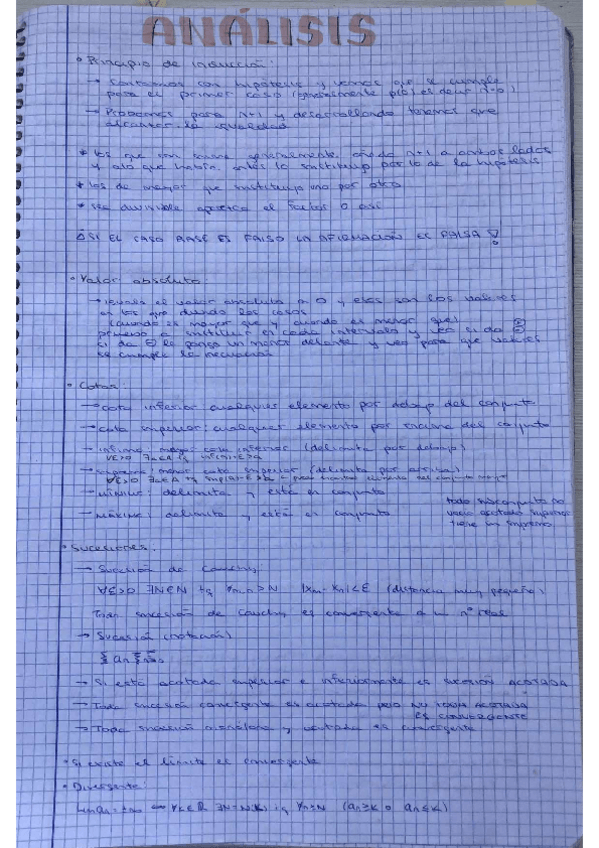 ANÁLISIS
• Principio de inducción:
→ Contamos con hipótesis y vemos que se cumple
para el primer caso (generalmente p(0) es decir n=0)
→ Probamos para n+1 y desarrollando tenemos que
alcanzar la igualdad
* los que son suma generalmente añado n+1 a ambos lados
y a lo que había antes lo sustituyo por lo de la hipótesis
* los de mayor que sustituyo uno por otro
* sea divisible aparece el factor o así
¡SI EL CASO BASE ES FALSO LA AFIRMACIÓN ES FALSA!
• Valor absoluto
→ igualo el valor absoluto a 0 y esos son los valores
en los que divido los casos
(cuando es mayor que y cuando es menor que)
a sustituir en cada intervalo y veo si da
si da ⊖ le pongo un menos delante y veo para que valores
se cumple la inecuación
• Cotas:
→ cota inferior: cualquier elemento por debajo del conjunto
→ cota superior: cualquier elemento por encima del conjunto
→ ínfimo: mayor cota inferior (delimita por debajo)
∀ε>0 ∃a∈A tq inf(A)+ε>a
→ supremo: menor cota superior (delimita por arriba)
∀ε>0 ∃a∈A tq sup(A)-ε<a
→ mínimo: delimita y está en conjunto
→ máximo: delimita y está en conjunto
todo subconjunto no
vacío acotado superior
tiene un supremo
• Sucesiones:
→ Sucesión de Cauchy
∀ε>0 ∃N∈N tq ∀m,n>N |xm-xn|<ε (distancia muy pequeña)
Toda sucesión de Cauchy es convergente a un nº real
→ Sucesión (notación)
→ Si está acotada superior e inferiormente es sucesión ACOTADA
→ Toda sucesión convergente es acotada pero NO TODA ACOTADA
ES CONVERGENTE
→ Toda sucesión monótona y acotada es convergente
• Si existe el límite es convergente
• Divergente:
Lim an = ±∞ ⟺ ∀K∈R ∃N=N(K) tq ∀n≥N (an≥K o an≤K)